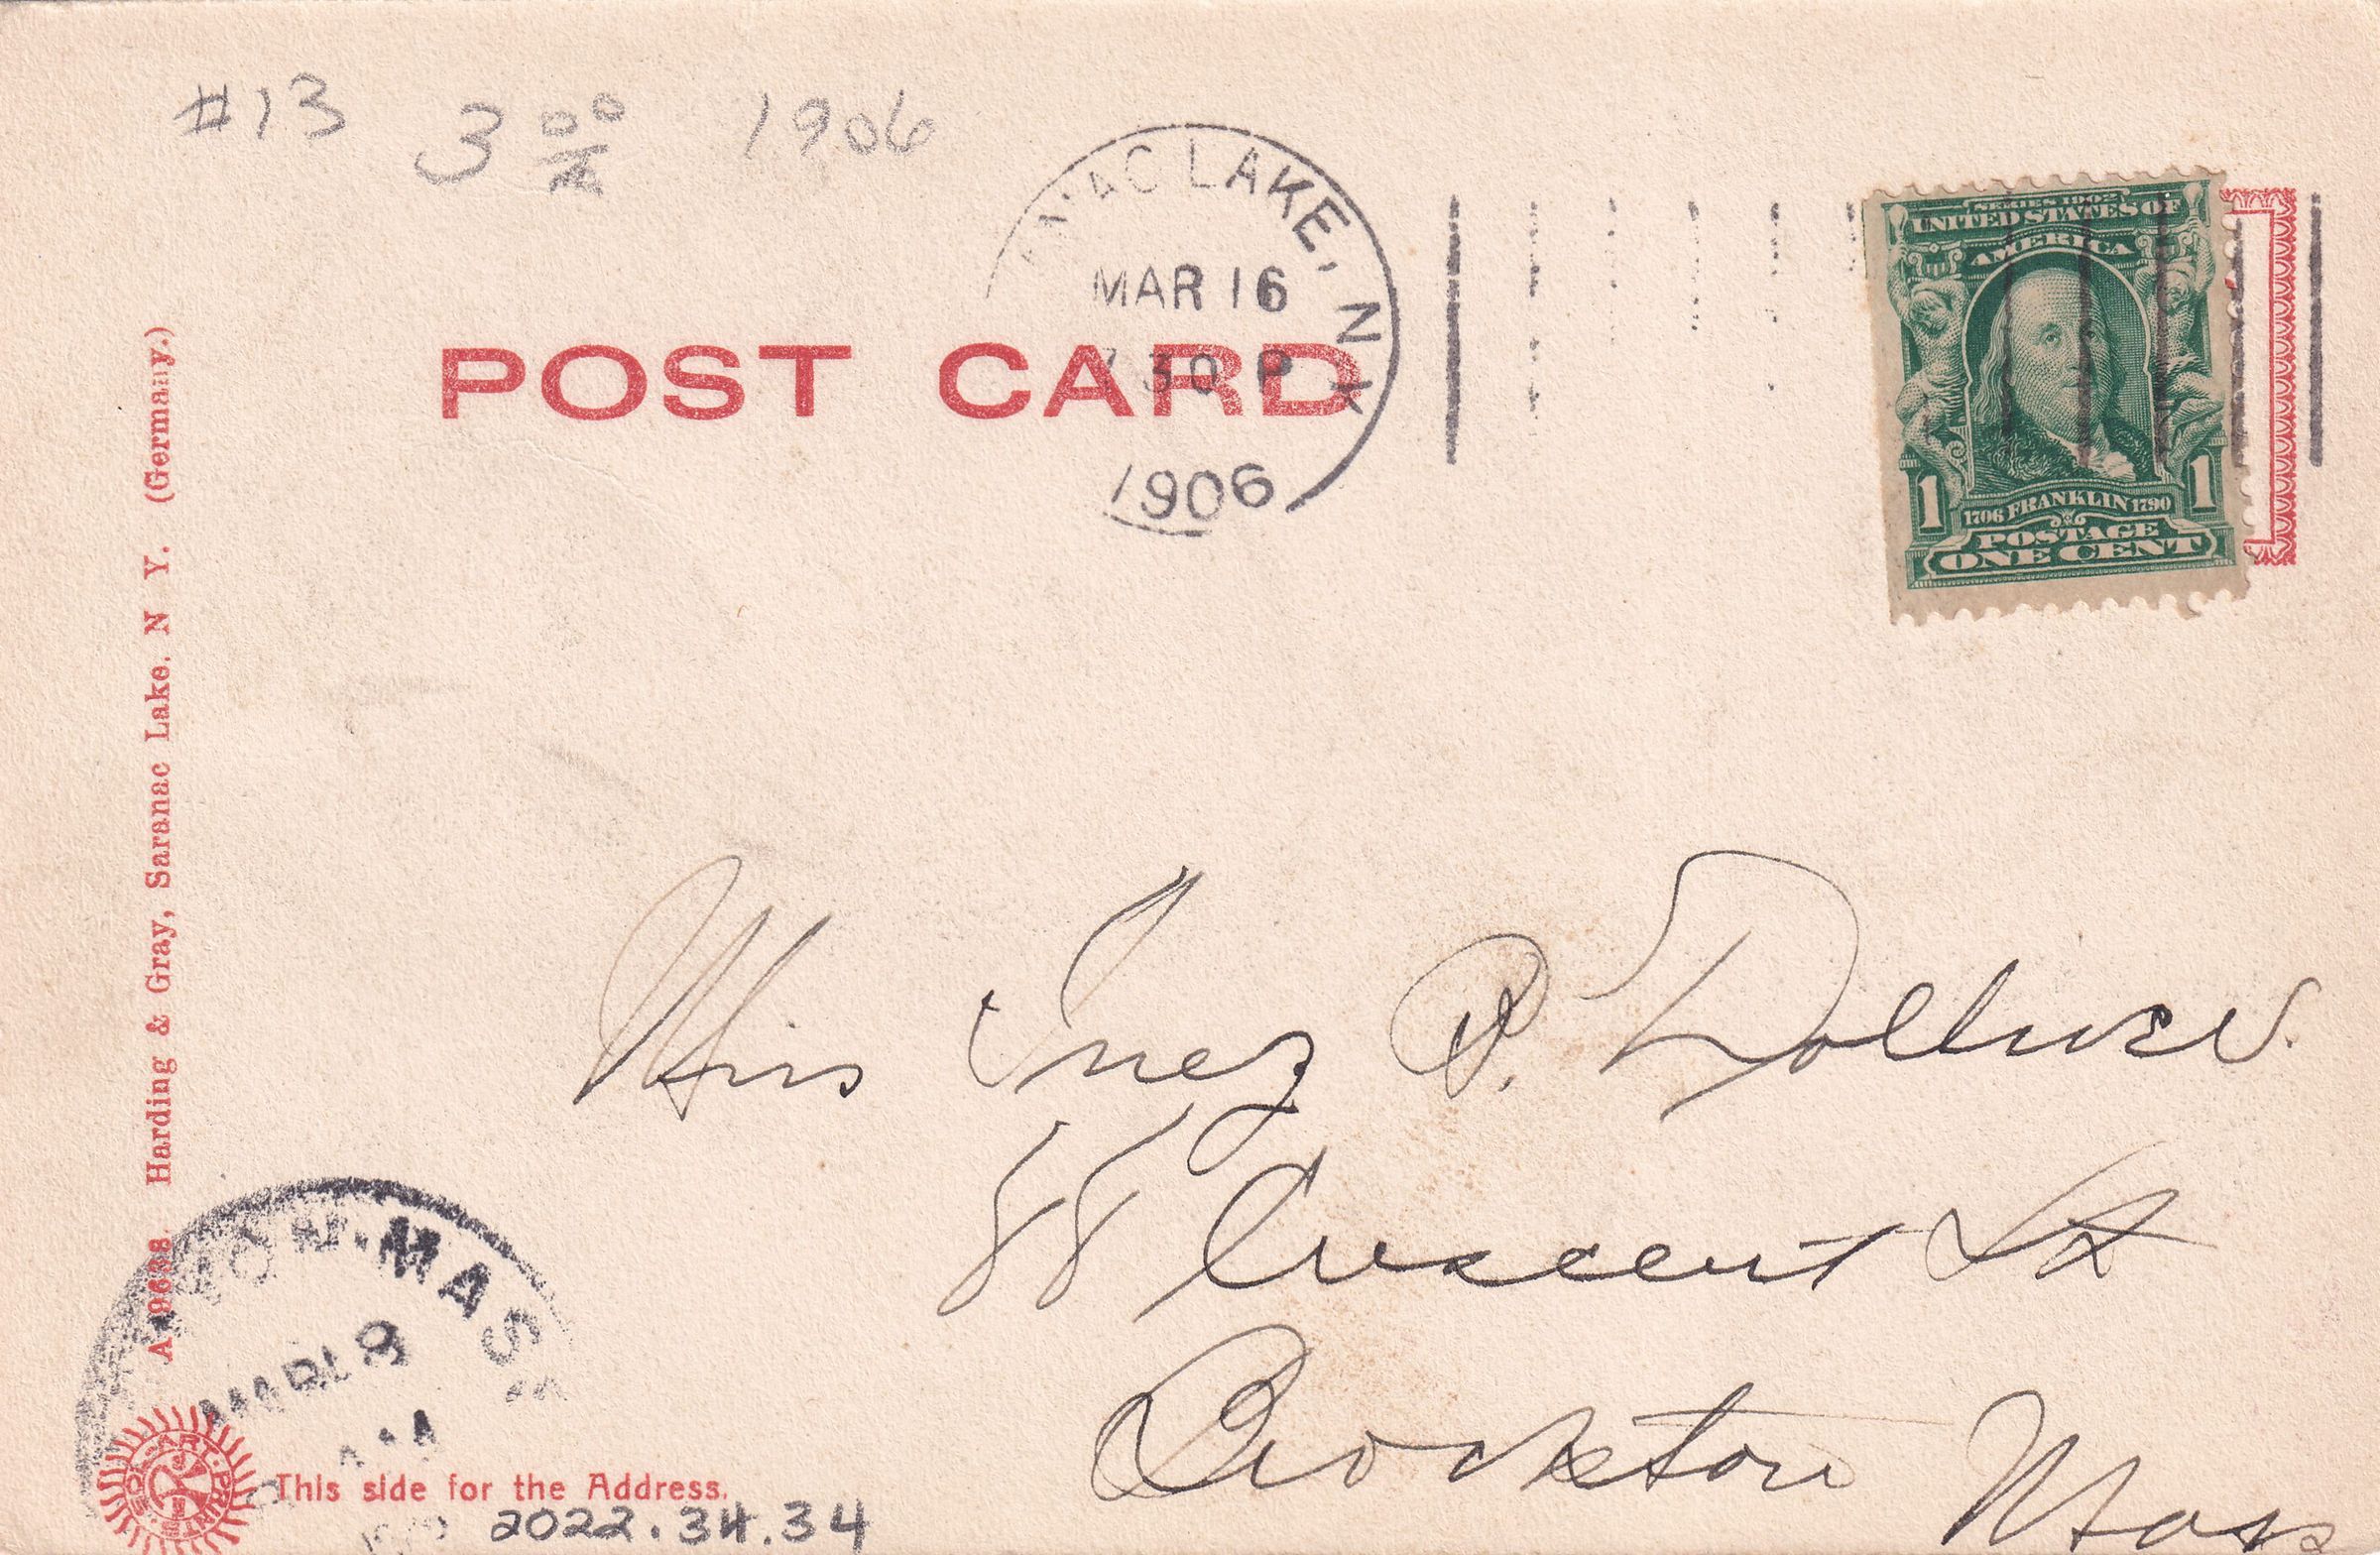 #13 3 00 1906
NAC LAKE, N.Y.
MAR 16
7 30 P
1906
SERIES 1902
UNITED STATES OF
AMERICA
1 1
1706 FRANKLIN 1790
POSTAGE
ONE CENT
POST CARD
A 9638 Harding & Gray, Saranac Lake. N Y. (Germany.)
Miss Inez P. Dolliver.
88 Crescent St
Brockton Mass
TON. MASS
MAR 18
This side for the Address.
2022.34.34